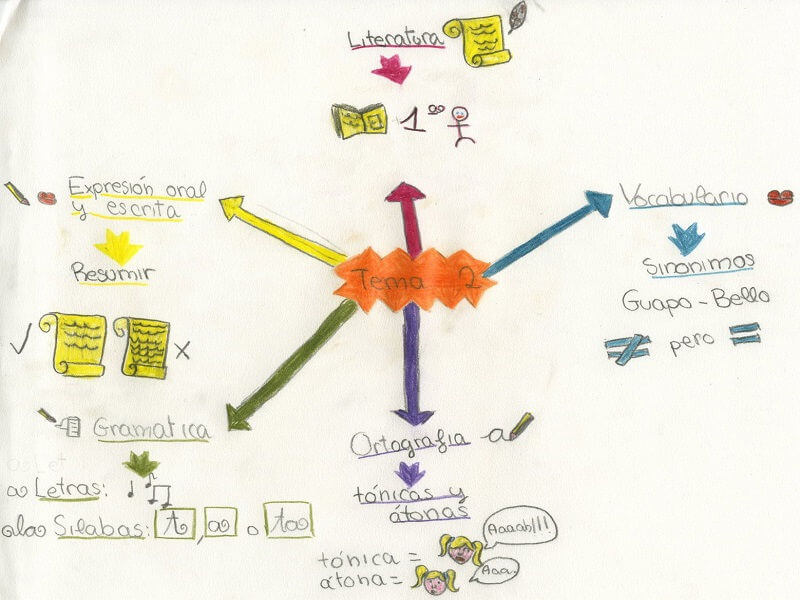 Literatura
1
Expresión oral
y escrita
Resumir
Vocabulario
Sinonimos
Guapo - Bello
≠ pero =
Tema 2
Gramatica
Letras:
Silabas: t, a o ta
Ortografia a
tónicas y
átonas
tónica =
Aaaah!!!
átona =
Aaa.